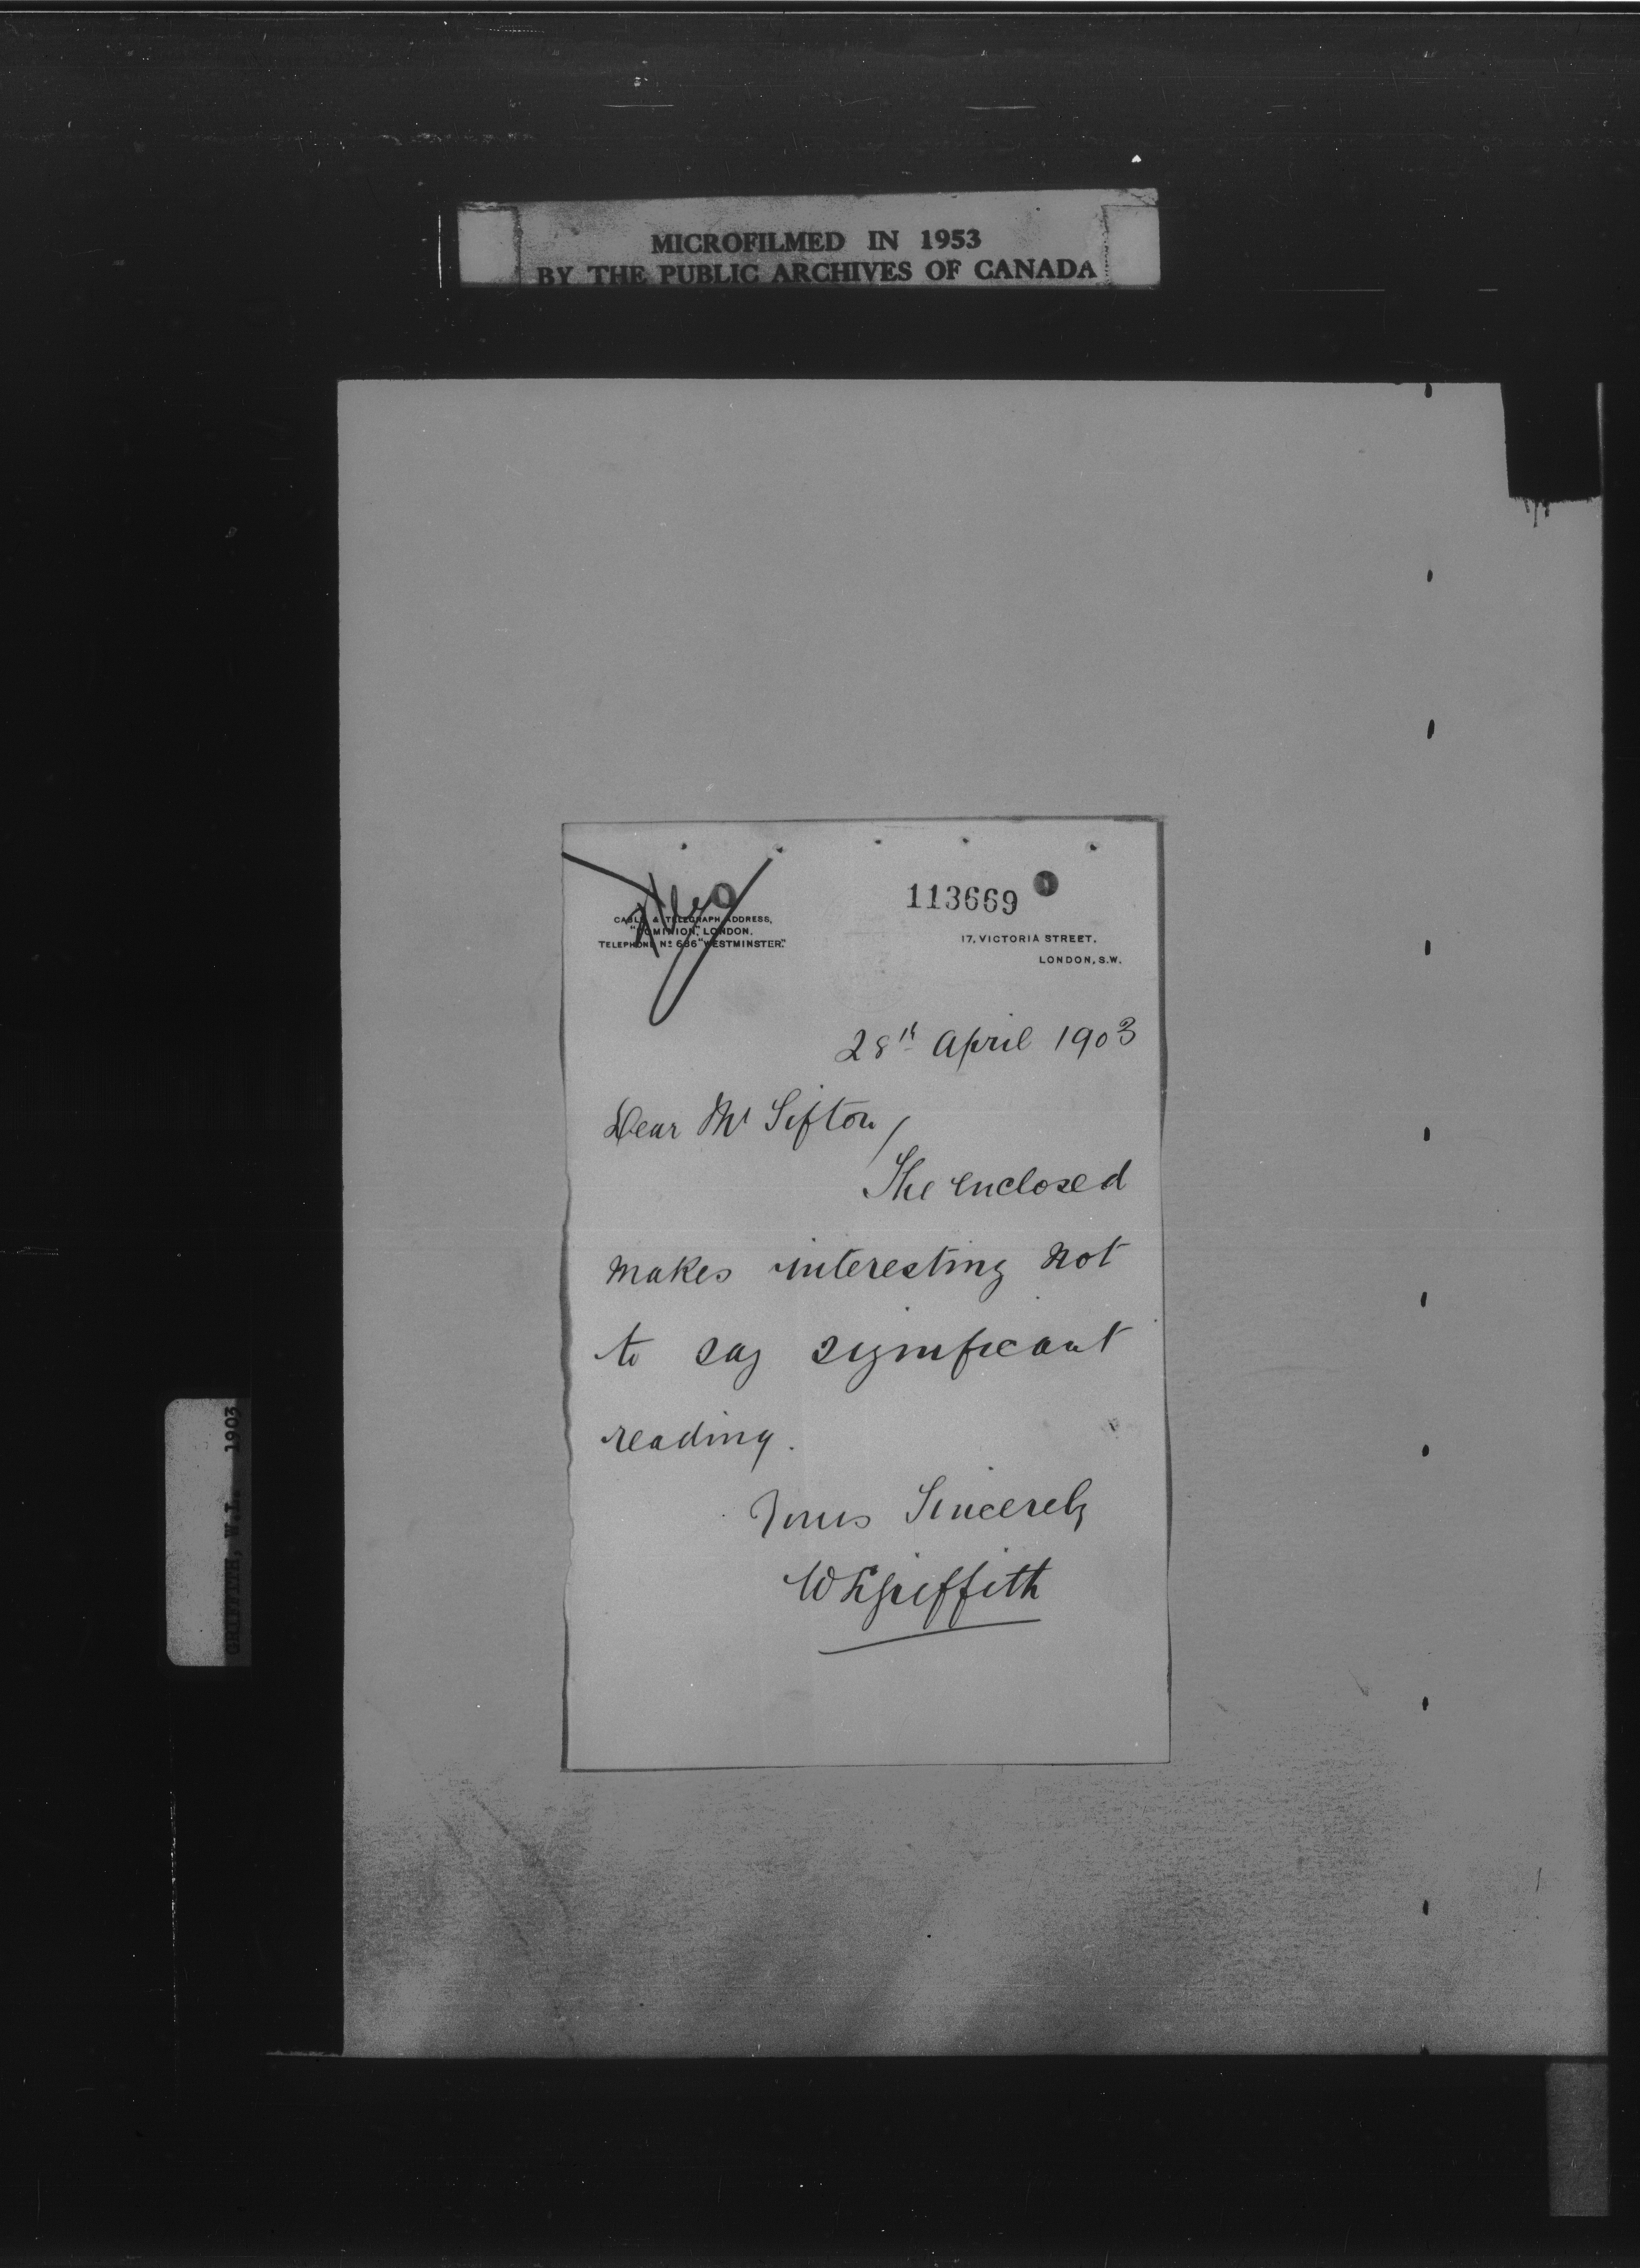 MICROFILMED IN 1953
BY THE PUBLIC ARCHIVES OF CANADA
113669
CABLE & TELEGRAPH ADDRESS,
"DOMINION", LONDON.
TELEPHONE Nº 686 "WESTMINSTER."
17, VICTORIA STREET,
LONDON, S.W.
28th April 1903
Dear Mr Sifton,
The enclosed
makes interesting not
to say significant
reading.
Yours Sincerely
W L Griffith
GRIFFITH, W.L. 1903